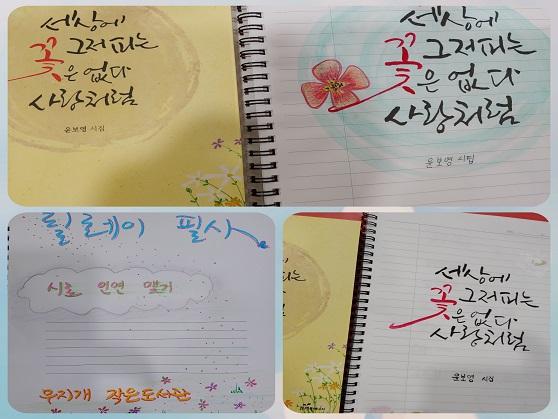 세상에
꽃 그저 피는
은 없다
사랑처럼
윤보영 시집
세상에
꽃 그저 피는
은 없다
사랑처럼
윤보영 시집
릴레이 필사
시로 인연 맺기
무지개 작은도서관
세상에
꽃 그저 피는
은 없다
사랑처럼
윤보영 시집